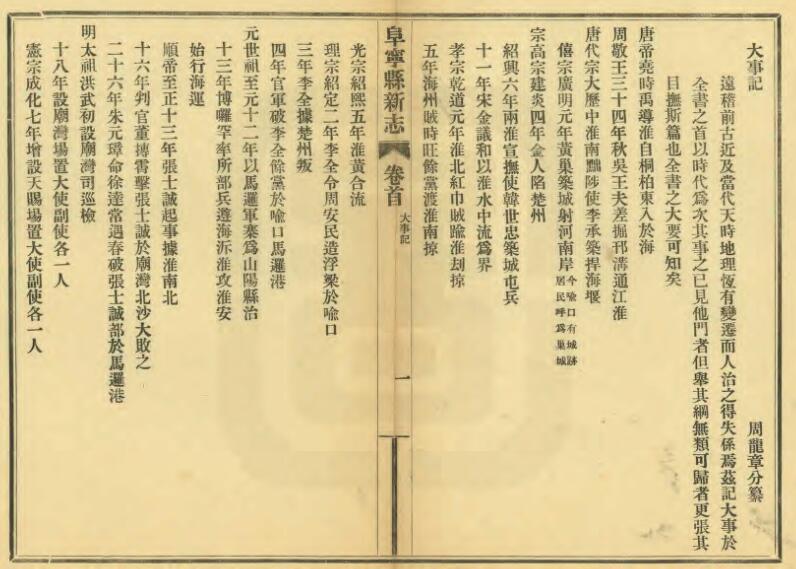 大事記
周龍章分纂
遠稽前古近及當代天時地理恆有變遷而人治之得失係焉茲記大事於
全書之首以時代爲次其事之已見他門者但舉其綱無類可歸者更張其
目撫斯篇也全書之大要可知矣
唐帝堯時禹導淮自桐柏東入於海
周敬王三十四年秋吳王夫差掘邗溝通江淮
唐代宗大歷中淮南黜陟使李承築捍海堰
僖宗廣明元年黃巢築城射河南岸今喻口有城跡居民呼爲巢城
宗高宗建炎四年金人陷楚州
紹興六年兩淮宣撫使韓世忠築城屯兵
十一年宋金議和以淮水中流爲界
孝宗乾道元年淮北紅巾賊踰淮刦掠
五年海州賊時旺餘黨渡淮南掠
阜寧縣新志
卷首
大事記
一
光宗紹熙五年淮黃合流
理宗紹定二年李全令周安民造浮梁於喻口
三年李全據楚州叛
四年官軍破李全餘黨於喻口馬邏港
元世祖至元十二年以馬邏軍寨爲山陽縣治
十三年博囉罕率所部兵遵海泝淮攻淮安
始行海運
順帝至正十三年張士誠起事據淮南北
十六年判官董摶霄擊張士誠於廟灣北沙大敗之
二十六年朱元璋命徐達常遇春破張士誠部於馬邏港
明太祖洪武初設廟灣司巡檢
十八年設廟灣場置大使副使各一人
憲宗成化七年增設天賜場置大使副使各一人